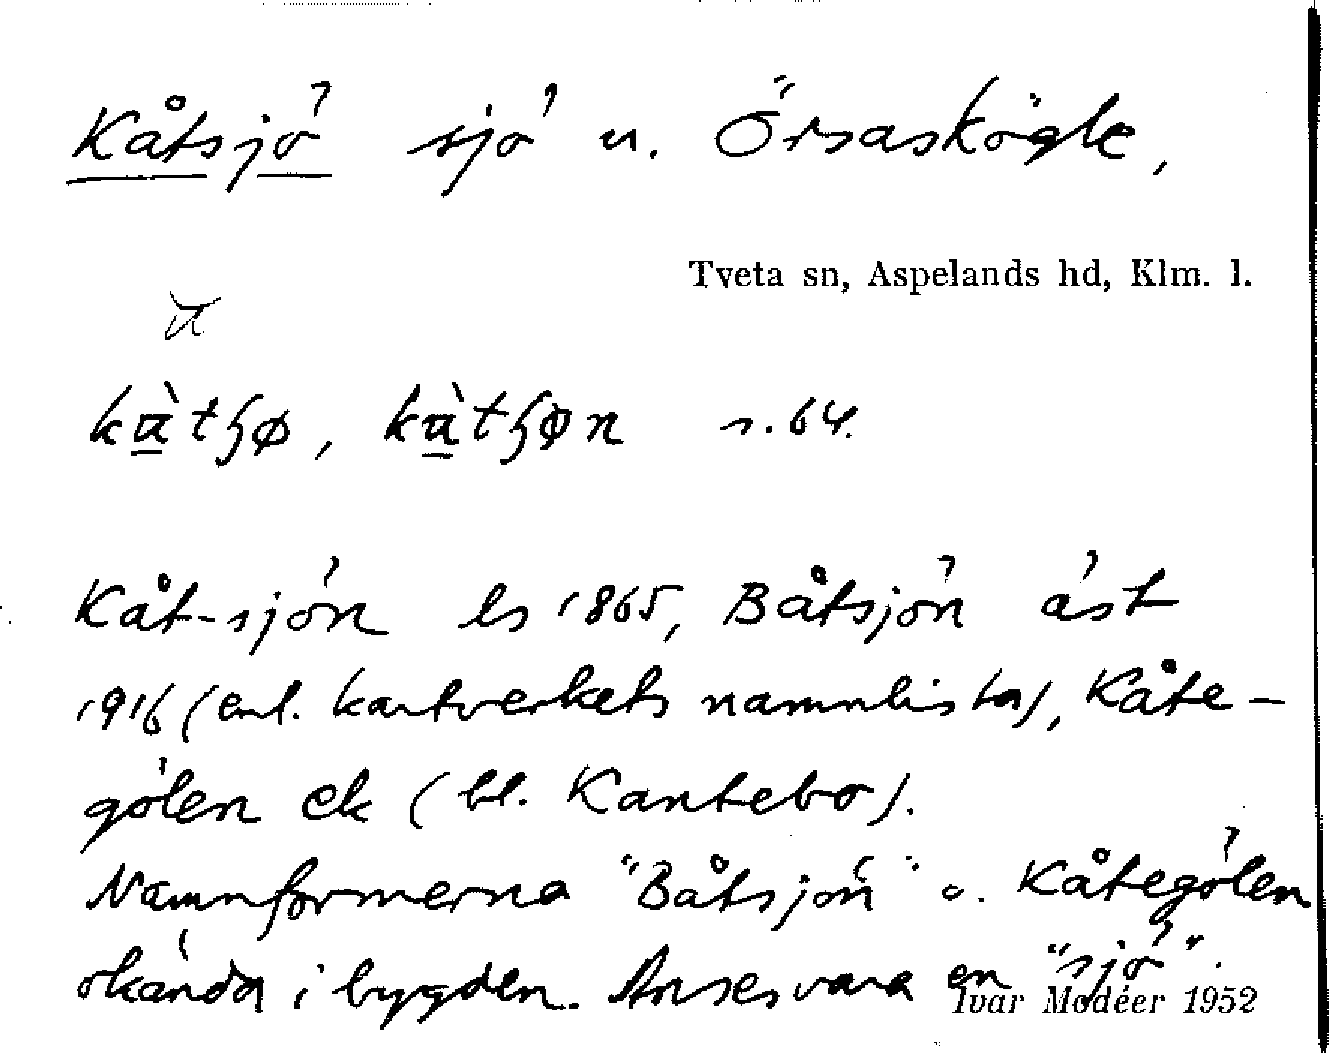 Kåtsjö sjö n. Örsaskögle,
Tveta sn, Aspelands hd, Klm. l.
s. 64.
Kåt-sjön ls 1865, Båtsjön äst
1916 (enl. kartverkets namnlista), Kåte-
gölen ek (bl. Kantebo).
Namnformerna "Båtsjön" o. Kåtegölen
okända i bygden. Anses vara en "sjö".
Ivar Modéer 1952